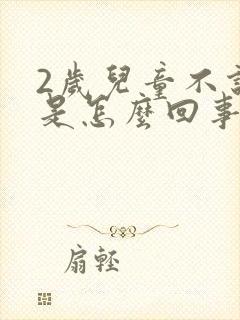 2歲兒童不
是怎麼回事
扇輕